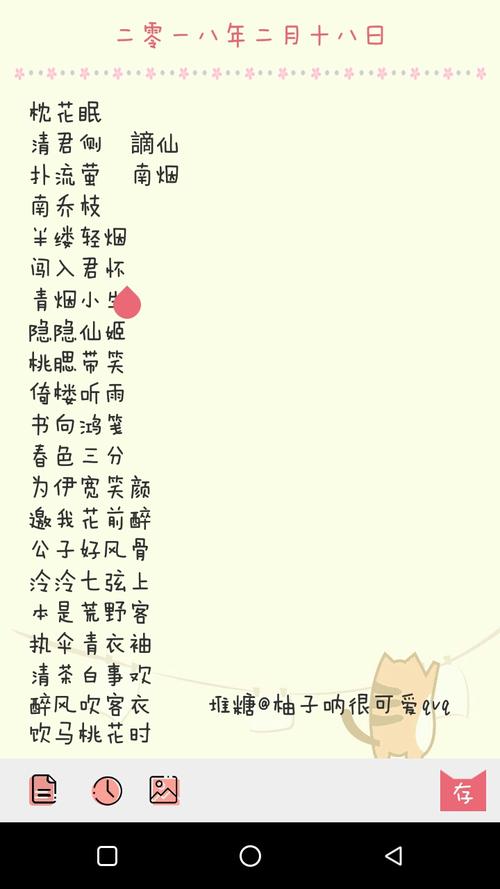 二零一八年二月十八日
枕花眠
清君侧 謫仙
扑流萤 南烟
南乔枝
半缕轻烟
闯入君怀
青烟小生
隐隐仙姬
桃腮带笑
倚楼听雨
书向鸿笺
春色三分
为伊宽笑颜
邀我花前醉
公子好风骨
泠泠七弦上
本是荒野客
执伞青衣袖
清茶白事欢
醉风吹客衣 堆糖@柚子呐很可爱qvq
饮马桃花时
存